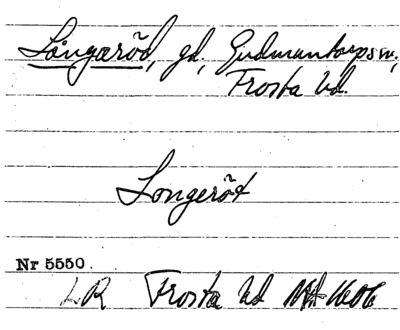 Långaröd, gd, Gudmuntorps sn,
Frosta hd.
Longeröt
Nr 5550
LR Frosta hd